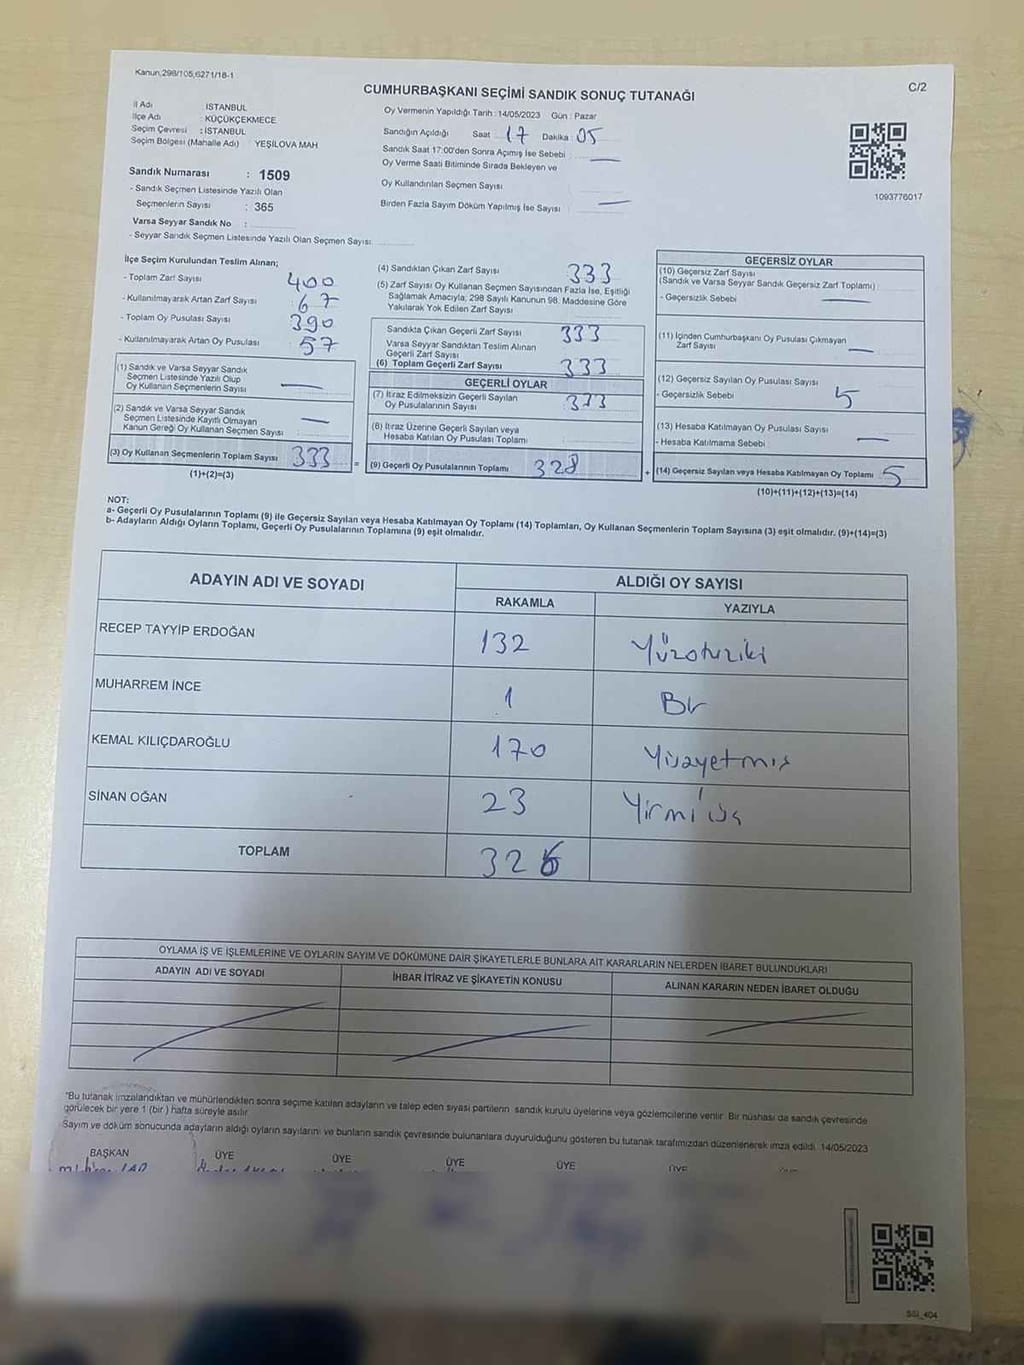 Kanun;298/105;6271/18-1
C/2
CUMHURBAŞKANI SEÇİMİ SANDIK SONUÇ TUTANAĞI
İl Adı İSTANBUL
İlçe Adı : KÜÇÜKÇEKMECE
Seçim Çevresi : İSTANBUL
Seçim Bölgesi (Mahalle Adı) YEŞİLOVA MAH
Sandık Numarası : 1509
- Sandık Seçmen Listesinde Yazılı Olan
Seçmenlerin Sayısı : 365
Varsa Seyyar Sandık No :
- Seyyar Sandık Seçmen Listesinde Yazılı Olan Seçmen Sayısı:
Oy Vermenin Yapıldığı Tarih : 14/05/2023 Gün : Pazar
Sandığın Açıldığı Saat 17 Dakika : 05
Sandık Saat 17:00'den Sonra Açımış İse Sebebi
Oy Verme Saati Bitiminde Sırada Bekleyen ve
Oy Kullandırılan Seçmen Sayısı
Birden Fazla Sayım Döküm Yapılmış İse Sayısı
1093776017
İlçe Seçim Kurulundan Teslim Alınan;
- Toplam Zarf Sayısı 400
- Kullanılmayarak Artan Zarf Sayısı 67
- Toplam Oy Pusulası Sayısı 390
- Kullanılmayarak Artan Oy Pusulası 57
(1) Sandık ve Varsa Seyyar Sandık
Seçmen Listesinde Yazılı Olup
Oy Kullanan Seçmenlerin Sayısı
(2) Sandık ve Varsa Seyyar Sandık
Seçmen Listesinde Kayıtlı Olmayan
Kanun Gereği Oy Kullanan Seçmen Sayısı :
(3) Oy Kullanan Seçmenlerin Toplam Sayısı 333
(1)+(2)=(3)
(4) Sandıktan Çıkan Zarf Sayısı 333
(5) Zarf Sayısı Oy Kullanan Seçmen Sayısından Fazla İse, Eşitliği
Sağlamak Amacıyla, 298 Sayılı Kanunun 98. Maddesine Göre
Yakılarak Yok Edilen Zarf Sayısı
Sandıkta Çıkan Geçerli Zarf Sayısı 333
Varsa Seyyar Sandıktan Teslim Alınan
Geçerli Zarf Sayısı
(6) Toplam Geçerli Zarf Sayısı 333
GEÇERLİ OYLAR
(7) İtiraz Edilmeksizin Geçerli Sayılan
Oy Pusulalarının Sayısı
(8) İtiraz Üzerine Geçerli Sayılan veya
Hesaba Katılan Oy Pusulası Toplamı
= (9) Geçerli Oy Pusulalarının Toplamı 328
GEÇERSİZ OYLAR
(10) Geçersiz Zarf Sayısı
(Sandık ve Varsa Seyyar Sandık Geçersiz Zarf Toplamı)
- Geçersizlik Sebebi
(11) İçinden Cumhurbaşkanı Oy Pusulası Çıkmayan
Zarf Sayısı
(12) Geçersiz Sayılan Oy Pusulası Sayısı
- Geçersizlik Sebebi : 5
(13) Hesaba Katılmayan Oy Pusulası Sayısı
- Hesaba Katılmama Sebebi
+ (14) Geçersiz Sayılan veya Hesaba Katılmayan Oy Toplamı 5
(10)+(11)+(12)+(13)=(14)
NOT:
a- Geçerli Oy Pusulalarının Toplamı (9) ile Geçersiz Sayılan veya Hesaba Katılmayan Oy Toplamı (14) Toplamları, Oy Kullanan Seçmenlerin Toplam Sayısına (3) eşit olmalıdır. (9)+(14)=(3)
b- Adayların Aldığı Oyların Toplamı, Geçerli Oy Pusulalarının Toplamına (9) eşit olmalıdır.
ADAYIN ADI VE SOYADI ALDIĞI OY SAYISI
RAKAMLA YAZIYLA
RECEP TAYYİP ERDOĞAN 132 Yüzotuziki
MUHARREM İNCE 1 Bir
KEMAL KILIÇDAROĞLU 170 Yüzyetmiş
SİNAN OĞAN 23 Yirmi üç
TOPLAM 326
OYLAMA İŞ VE İŞLEMLERİNE VE OYLARIN SAYIM VE DÖKÜMÜNE DAİR ŞİKAYETLERLE BUNLARA AİT KARARLARIN NELERDEN İBARET BULUNDUKLARI
ADAYIN ADI VE SOYADI İHBAR İTİRAZ VE ŞİKAYETİN KONUSU ALINAN KARARIN NEDEN İBARET OLDUĞU
*Bu tutanak imzalandıktan ve mühürlendikten sonra seçime katılan adayların ve talep eden siyasi partilerin sandık kurulu üyelerine veya gözlemcilerine verilir. Bir nüshası da sandık çevresinde
görülecek bir yere 1 (bir ) hafta süreyle asılır.
Sayım ve döküm sonucunda adayların aldığı oyların sayılarını ve bunların sandık çevresinde bulunanlara duyurulduğunu gösteren bu tutanak tarafımızdan düzenlenerek imza edildi. 14/05/2023
BAŞKAN ÜYE ÜYE ÜYE ÜYE ÜYE
SSI_404